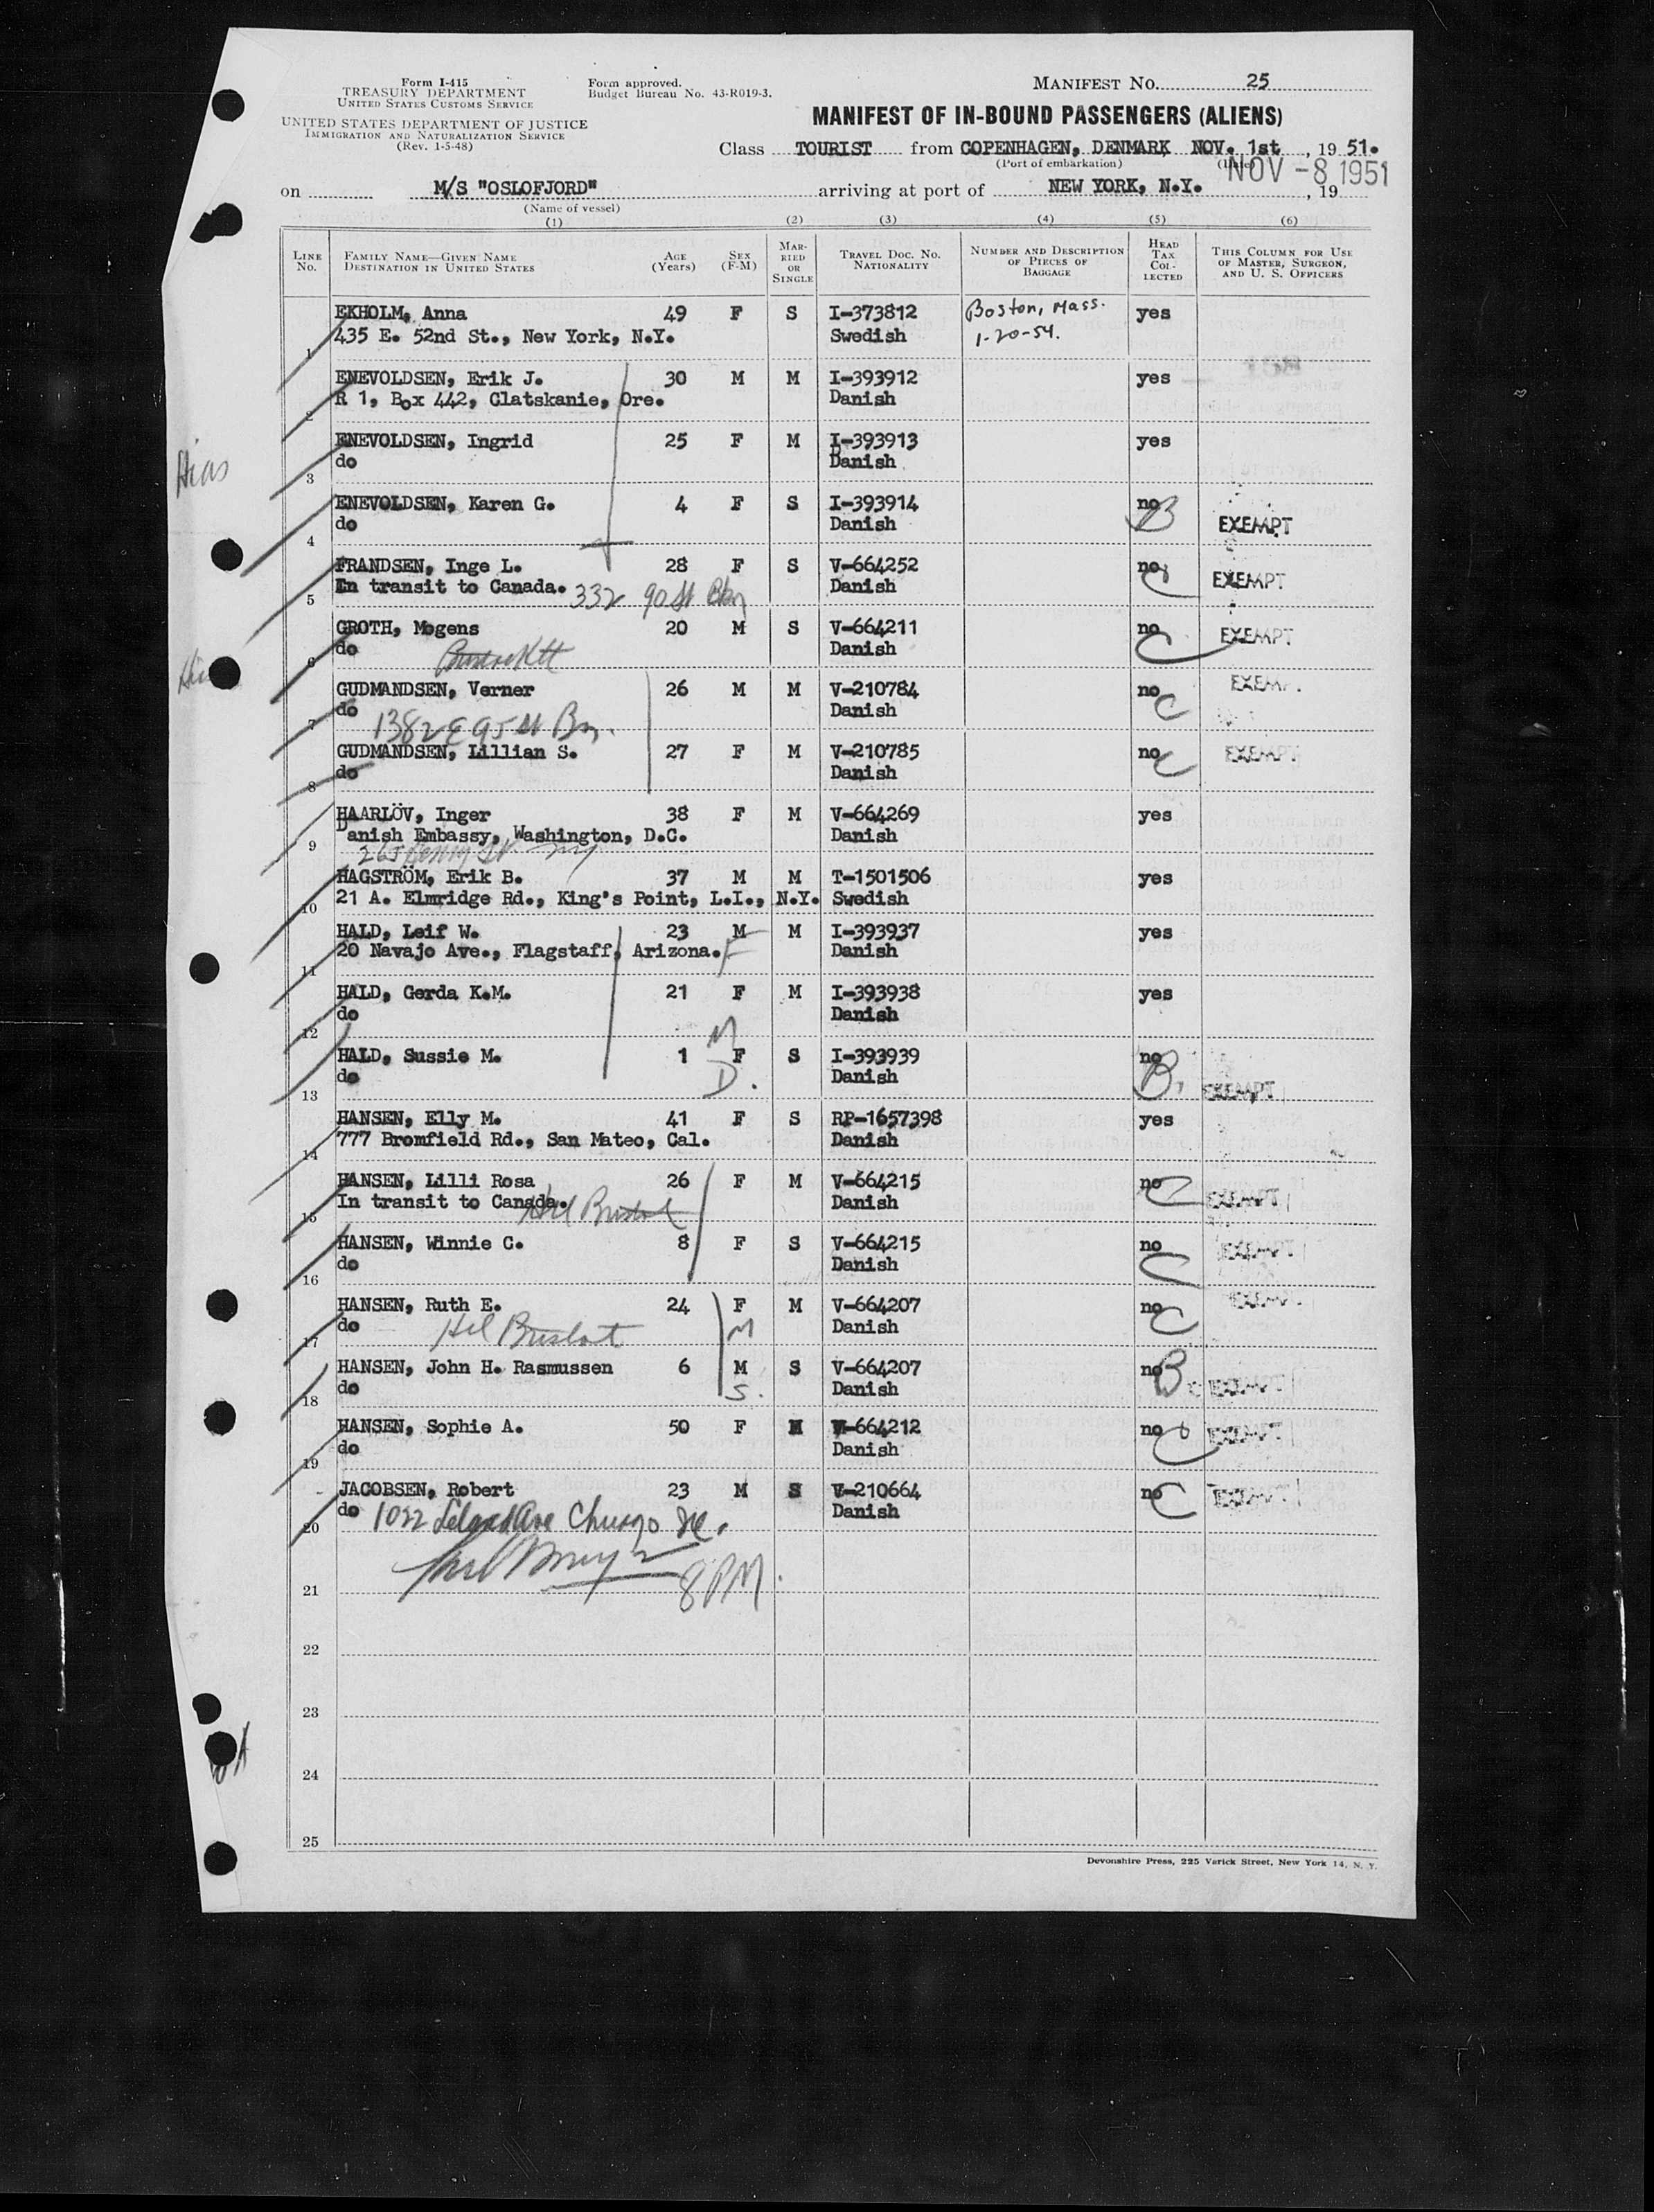 Form I-415
TREASURY DEPARTMENT
UNITED STATES CUSTOMS SERVICE
UNITED STATES DEPARTMENT OF JUSTICE
IMMIGRATION AND NATURALIZATION SERVICE
(Rev. 1-5-48)
Form approved.
Budget Bureau No. 43-R019-3.
MANIFEST NO. 25
MANIFEST OF IN-BOUND PASSENGERS (ALIENS)
Class TOURIST from COPENHAGEN, DENMARK NOV. 1st, 1951.
(Port of embarkation) (Date)
NOV -8 1951
on M/S "OSLOFJORD" arriving at port of NEW YORK, N.Y., 19
(Name of vessel)
(1) (2) (3) (4) (5) (6)
LINE NO. FAMILY NAME—GIVEN NAME DESTINATION IN UNITED STATES AGE (YEARS) SEX (F-M) MARRIED OR SINGLE TRAVEL DOC. NO. NATIONALITY NUMBER AND DESCRIPTION OF PIECES OF BAGGAGE HEAD TAX COLLECTED THIS COLUMN FOR USE OF MASTER, SURGEON, AND U. S. OFFICERS
EKHOLM, Anna 49 F S I-373812 Boston, Mass. yes
1 435 E. 52nd St., New York, N.Y. Swedish 1-20-54.
ENEVOLDSEN, Erik J. 30 M M I-393912 yes
2 R 1, Box 442, Clatskanie, Ore. Danish
ENEVOLDSEN, Ingrid 25 F M I-393913 yes
3 do Danish
Hias
ENEVOLDSEN, Karen G. 4 F S I-393914 no B
4 do Danish EXEMPT
FRANDSEN, Inge L. 28 F S V-664252 no C
5 In transit to Canada. 332 90 St Bkn Danish EXEMPT
GROTH, Mogens 20 M S V-664211 no C EXEMPT
6 do Danish
GUDMANDSEN, Verner 26 M M V-210784 no C EXEMPT
7 do 1382 E 95 St Bn. Danish
GUDMANDSEN, Lillian S. 27 F M V-210785 no C EXEMPT
8 do Danish
HAARLÖV, Inger 38 F M V-664269 yes
9 Danish Embassy, Washington, D.C. Danish
HAGSTRÖM, Erik B. 37 M M T-1501506 yes
10 21 A. Elmridge Rd., King's Point, L.I., N.Y. Swedish
HALD, Leif W. 23 M M I-393937 yes
11 20 Navajo Ave., Flagstaff, Arizona. F Danish
HALD, Gerda K.M. 21 F M I-393938 yes
12 do M Danish
HALD, Sussie M. 1 F S I-393939 no B.
13 do D. Danish EXEMPT
HANSEN, Elly M. 41 F S RP-1657398 yes
14 777 Bromfield Rd., San Mateo, Cal. Danish
HANSEN, Lilli Rosa 26 F M V-664215 no C EXEMPT
15 In transit to Canada. Danish
HANSEN, Winnie C. 8 F S V-664215 no C EXEMPT
16 do Danish
HANSEN, Ruth E. 24 F M V-664207 no C EXEMPT
17 do M Danish
HANSEN, John H. Rasmussen 6 M S V-664207 no B EXEMPT
18 do S. Danish
HANSEN, Sophie A. 50 F M V-664212 no C EXEMPT
19 do Danish
JACOBSEN, Robert 23 M S V-210664 no C EXEMPT
20 do 1022 Leland Ave Chicago Ill. Danish
8 PM.
21
22
23
24
25
Devonshire Press, 225 Varick Street, New York 14, N. Y.